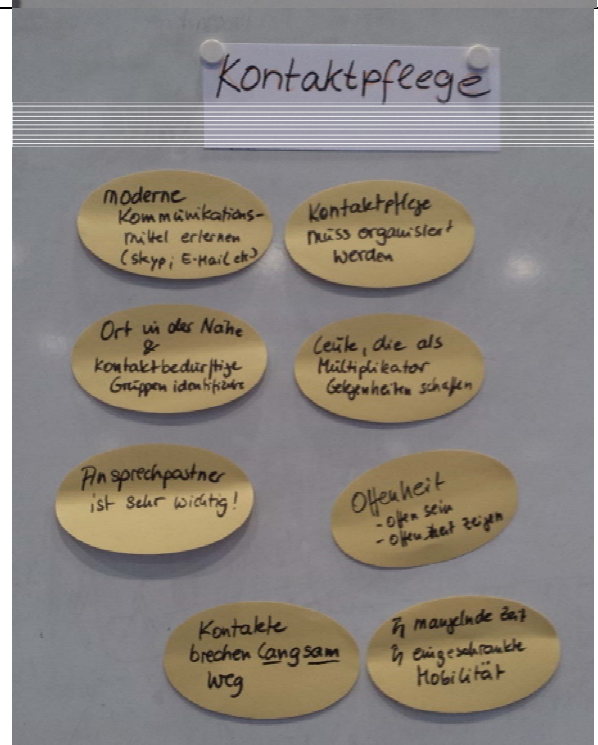 Kontaktpflege
moderne
Kommunikations-
mittel erlernen
(Skype, E-Mail etc)
Kontaktpflege
muss organisiert
werden
Ort in der Nähe
&
Kontaktbedürftige
Gruppen identifizieren
Leute, die als
Multiplikator
Gelegenheiten schaffen
Ansprechpartner
ist sehr wichtig!
Offenheit
- offen sein
- Offenheit zeigen
Kontakte
brechen langsam
weg
↯ mangelnde Zeit
↯ eingeschränkte
Mobilität